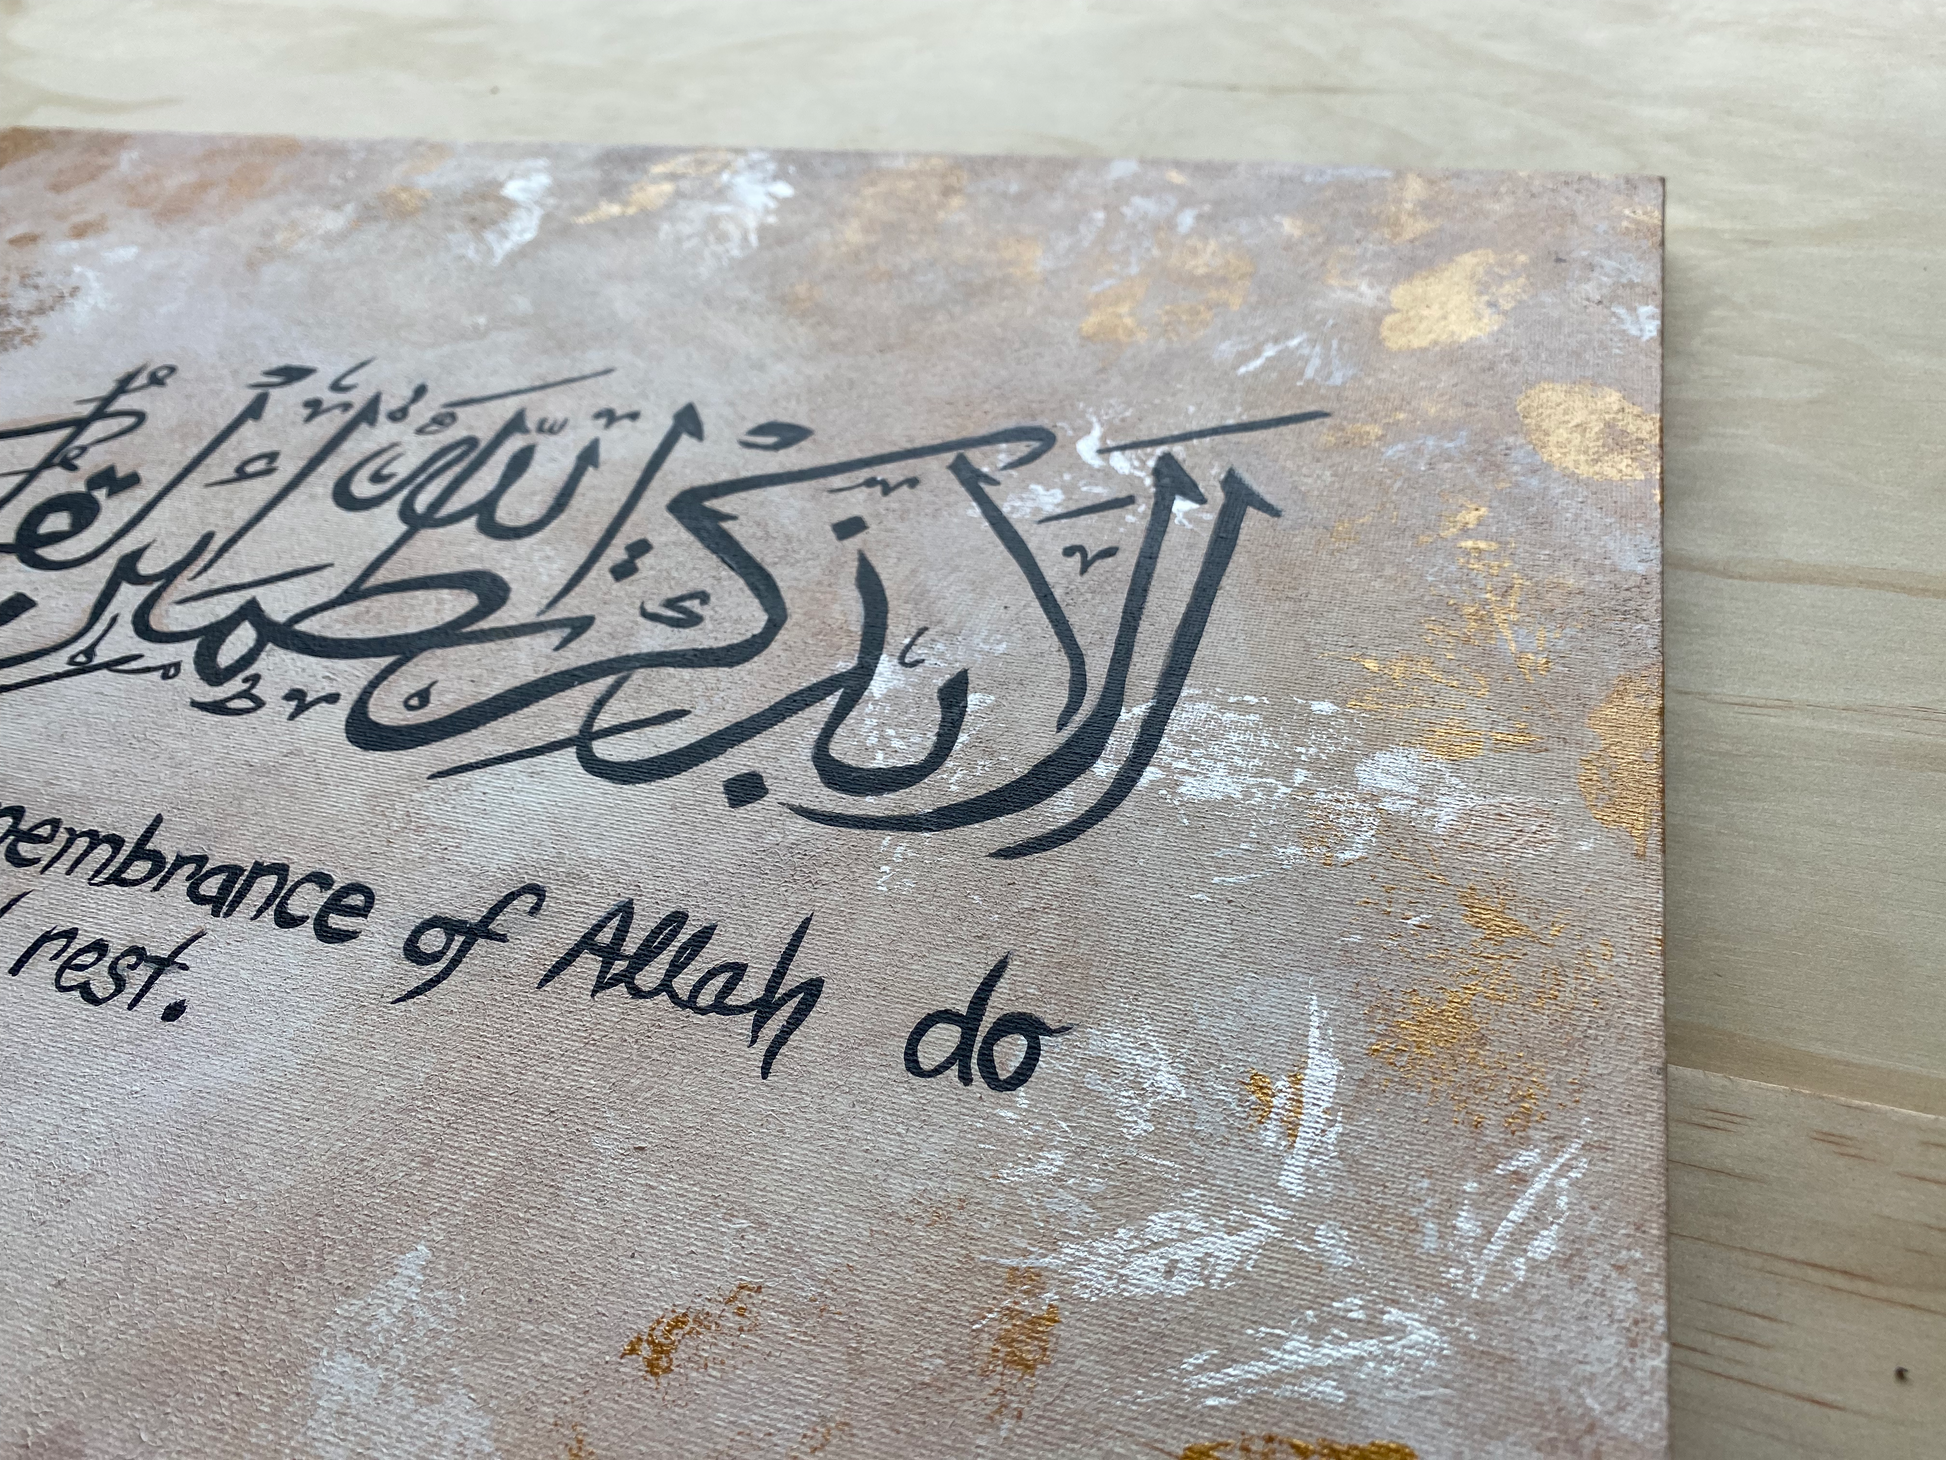 الا بذكر الله تطمئن
membrance of Allah do
rest.